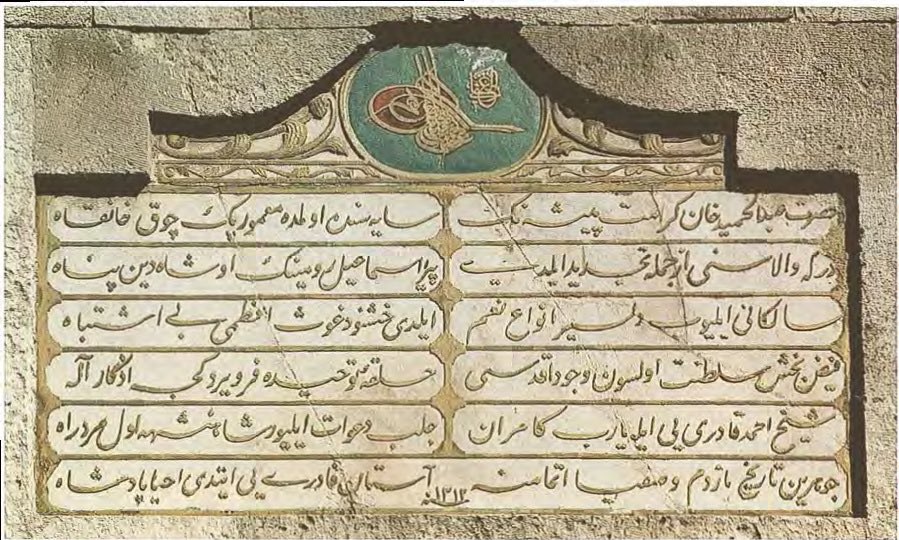 حضرت عبدالحمید خان کرامت پیشه‌نك سایه‌سنده اولمده معمور پك چوق خانقاه
درکه والاسنی از جمله تجدید ایلدی پیر اسماعیل رومینك او شاه دین پناه
سالكانی ایلیوب دلسیر انواع نعم ایلدی خشنود غوث اعظمی بی اشتباه
فیض بخش سلطنت اولسون وجود اقدسی حلقۀ توحیده فر ویردکجه اذکار آله
شیخ احمد قادری یی ایله یارب کامران جلب دعوات ایلیور شاهنشهه اول مرد راه
جوهرین تاریخ یازدم وصفیا اتمامنه آستان قادری یی ایتدی احیا پادشاه
سنه ١٣١٢